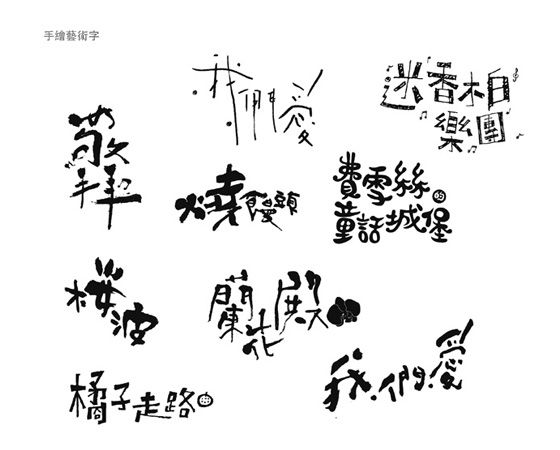 手繪藝術字
我們愛
迷香相
樂團
敬拜
燒饅頭
費雪絲的
童話城堡
桜波
蘭花殿
我們愛
橘子走路